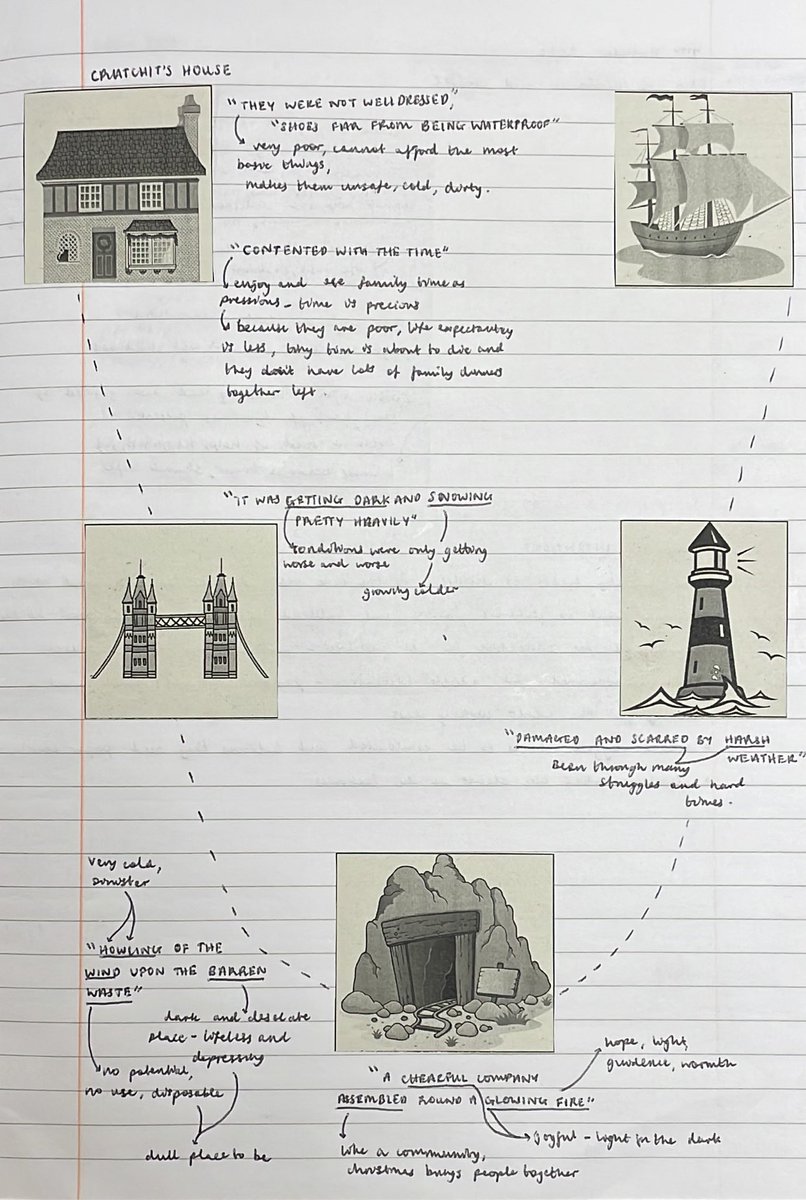 CRATCHIT'S HOUSE
"THEY WERE NOT WELL DRESSED,"
"SHOES FAR FROM BEING WATERPROOF"
very poor, cannot afford the most
basic things,
makes them unsafe, cold, dirty.
"CONTENTED WITH THE TIME"
enjoy and use family time as
pressions - time is precious
because they are poor, life expectantey
is less, tiny tim is about to die and
they dosit have lots of family dinners
together left.
"IT WAS GETTING DARK AND SNOWING
PRETTY HEAVILY"
conditions were only getting
worse and worse
growing colder
"DAMAGED AND SCARRED BY HARSH
WEATHER"
Been through many
struggles and hard
times.
very cold,
sinister
"HOWLING OF THE
WIND UPON THE BARREN
WASTE"
dark and desolate
place - lifeless and
depressing
no potential,
no use, disposable
dull place to be
"A CHEERFUL COMPANY
ASSEMBLED ROUND A GLOWING FIRE"
hope, light,
guidence, warmth
joyful - light in the dark
like a community,
christmas brings people together